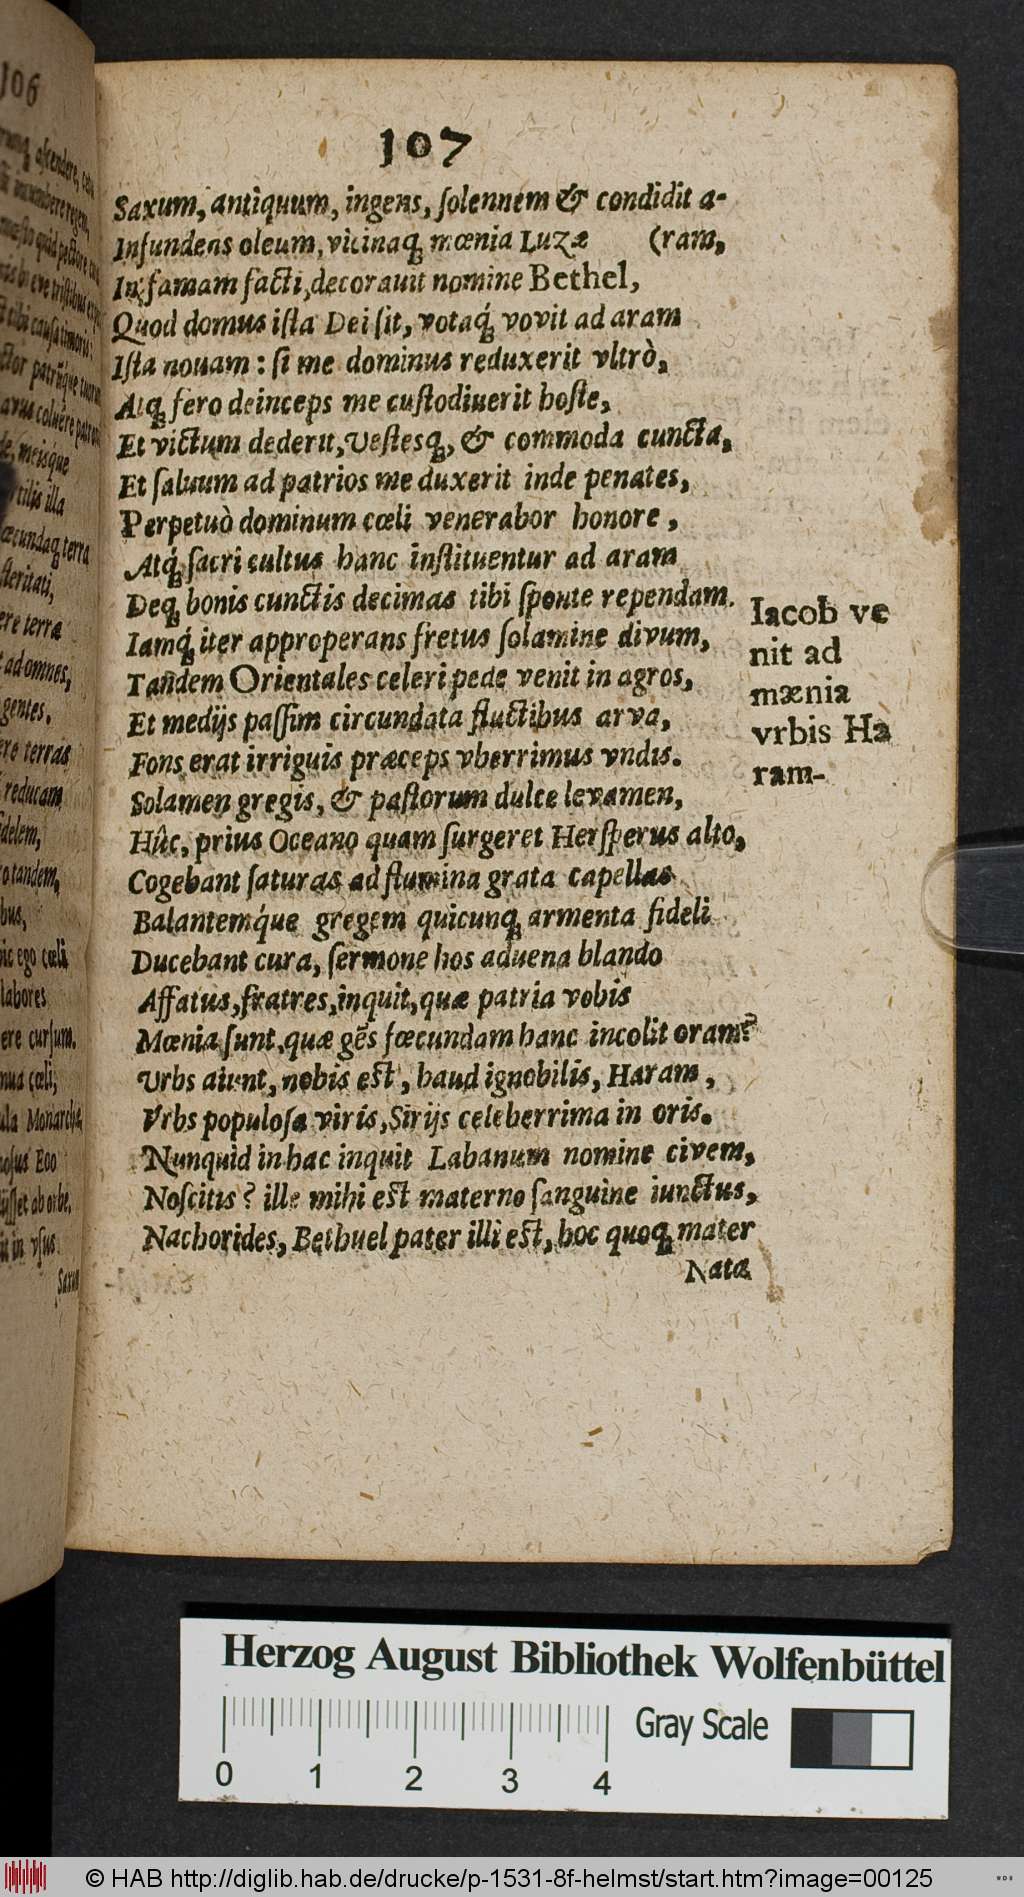 107
Saxum, antiquum, ingens, ſolennem & condidit a-
Infundens oleum, vicinaq́; mœnia Luzæ (ram,
In famam facti, decorauit nomine Bethel,
Quod domus iſta Dei ſit, votaq́; vovit ad aram
Iſta nouam : ſi me dominus reduxerit vltrò,
Atq; fero deinceps me cuſtodiuerit hoſte,
Et victum dederit, Veſtesq;, & commoda cuncta,
Et ſaluum ad patrios me duxerit inde penates,
Perpetuò dominum cœli venerabor honore,
Atq́; ſacri cultus hanc inſtituentur ad aram
Deq; bonis cunctis decimas tibi ſponte rependam.
Iamq́; iter approperans fretus ſolamine divum,
Tandem Orientales celeri pede venit in agros,
Et medijs paſſim circundata fluctibus arva,
Fons erat irriguis præceps vberrimus vndis.
Solamen gregis, & paſtorum dulce levamen,
Hûc, prius Oceano quam ſurgeret Herſperus alto,
Cogebant ſaturas ad flumina grata capellas
Balantemq́ue gregem quicunq; armenta fideli
Ducebant cura, ſermone hos aduena blando
Affatus, fratres, inquit, quæ patria vobis
Mœnia ſunt, quæ gẽs fœcundam hanc incolit oram?
Vrbs aiunt, nobis eſt, haud ignobilis, Haram,
Vrbs populoſa viris, Sirijs celeberrima in oris.
Nunquid in hac inquit Labanum nomine civem,
Noſcitis? ille mihi eſt materno ſanguine iunctus,
Nachorides, Bethuel pater illi eſt, hoc quoq; mater
Nata
Iacob ve
nit ad
mænia
vrbis Ha
ram-
106
aſcendere,
patrũque tuorum
meisque
illa
æcundaq; terra
ſteritati,
ere terræ
ad omnes,
gentes,
ere terras
reducam
fidelem,
tandem,
ic ego cœli
labores
ere curſum.
cœli,
Monarchæ,
Eoo
ab orbe,
in vſus
Saxum
Herzog August Bibliothek Wolfenbüttel
0 1 2 3 4
Gray Scale
© HAB http://diglib.hab.de/drucke/p-1531-8f-helmst/start.htm?image=00125